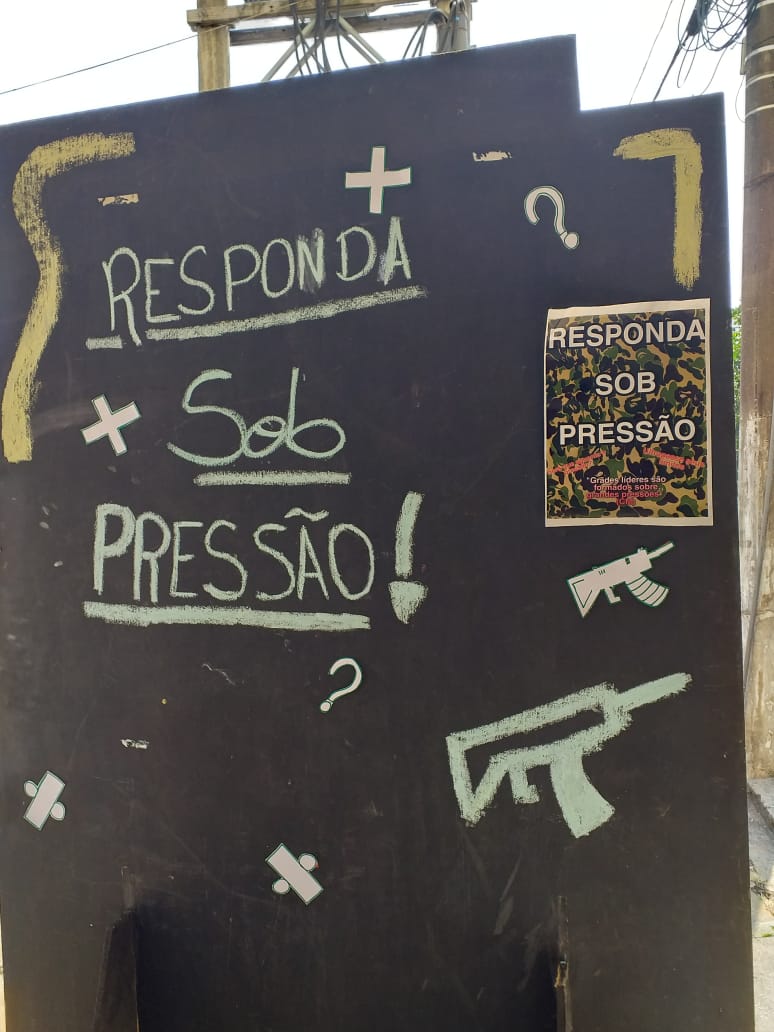 RESPONDA
Sob
PRESSÃO!
RESPONDA
SOB
PRESSÃO
"Grades líderes são
formados sobre
grandes pressões"